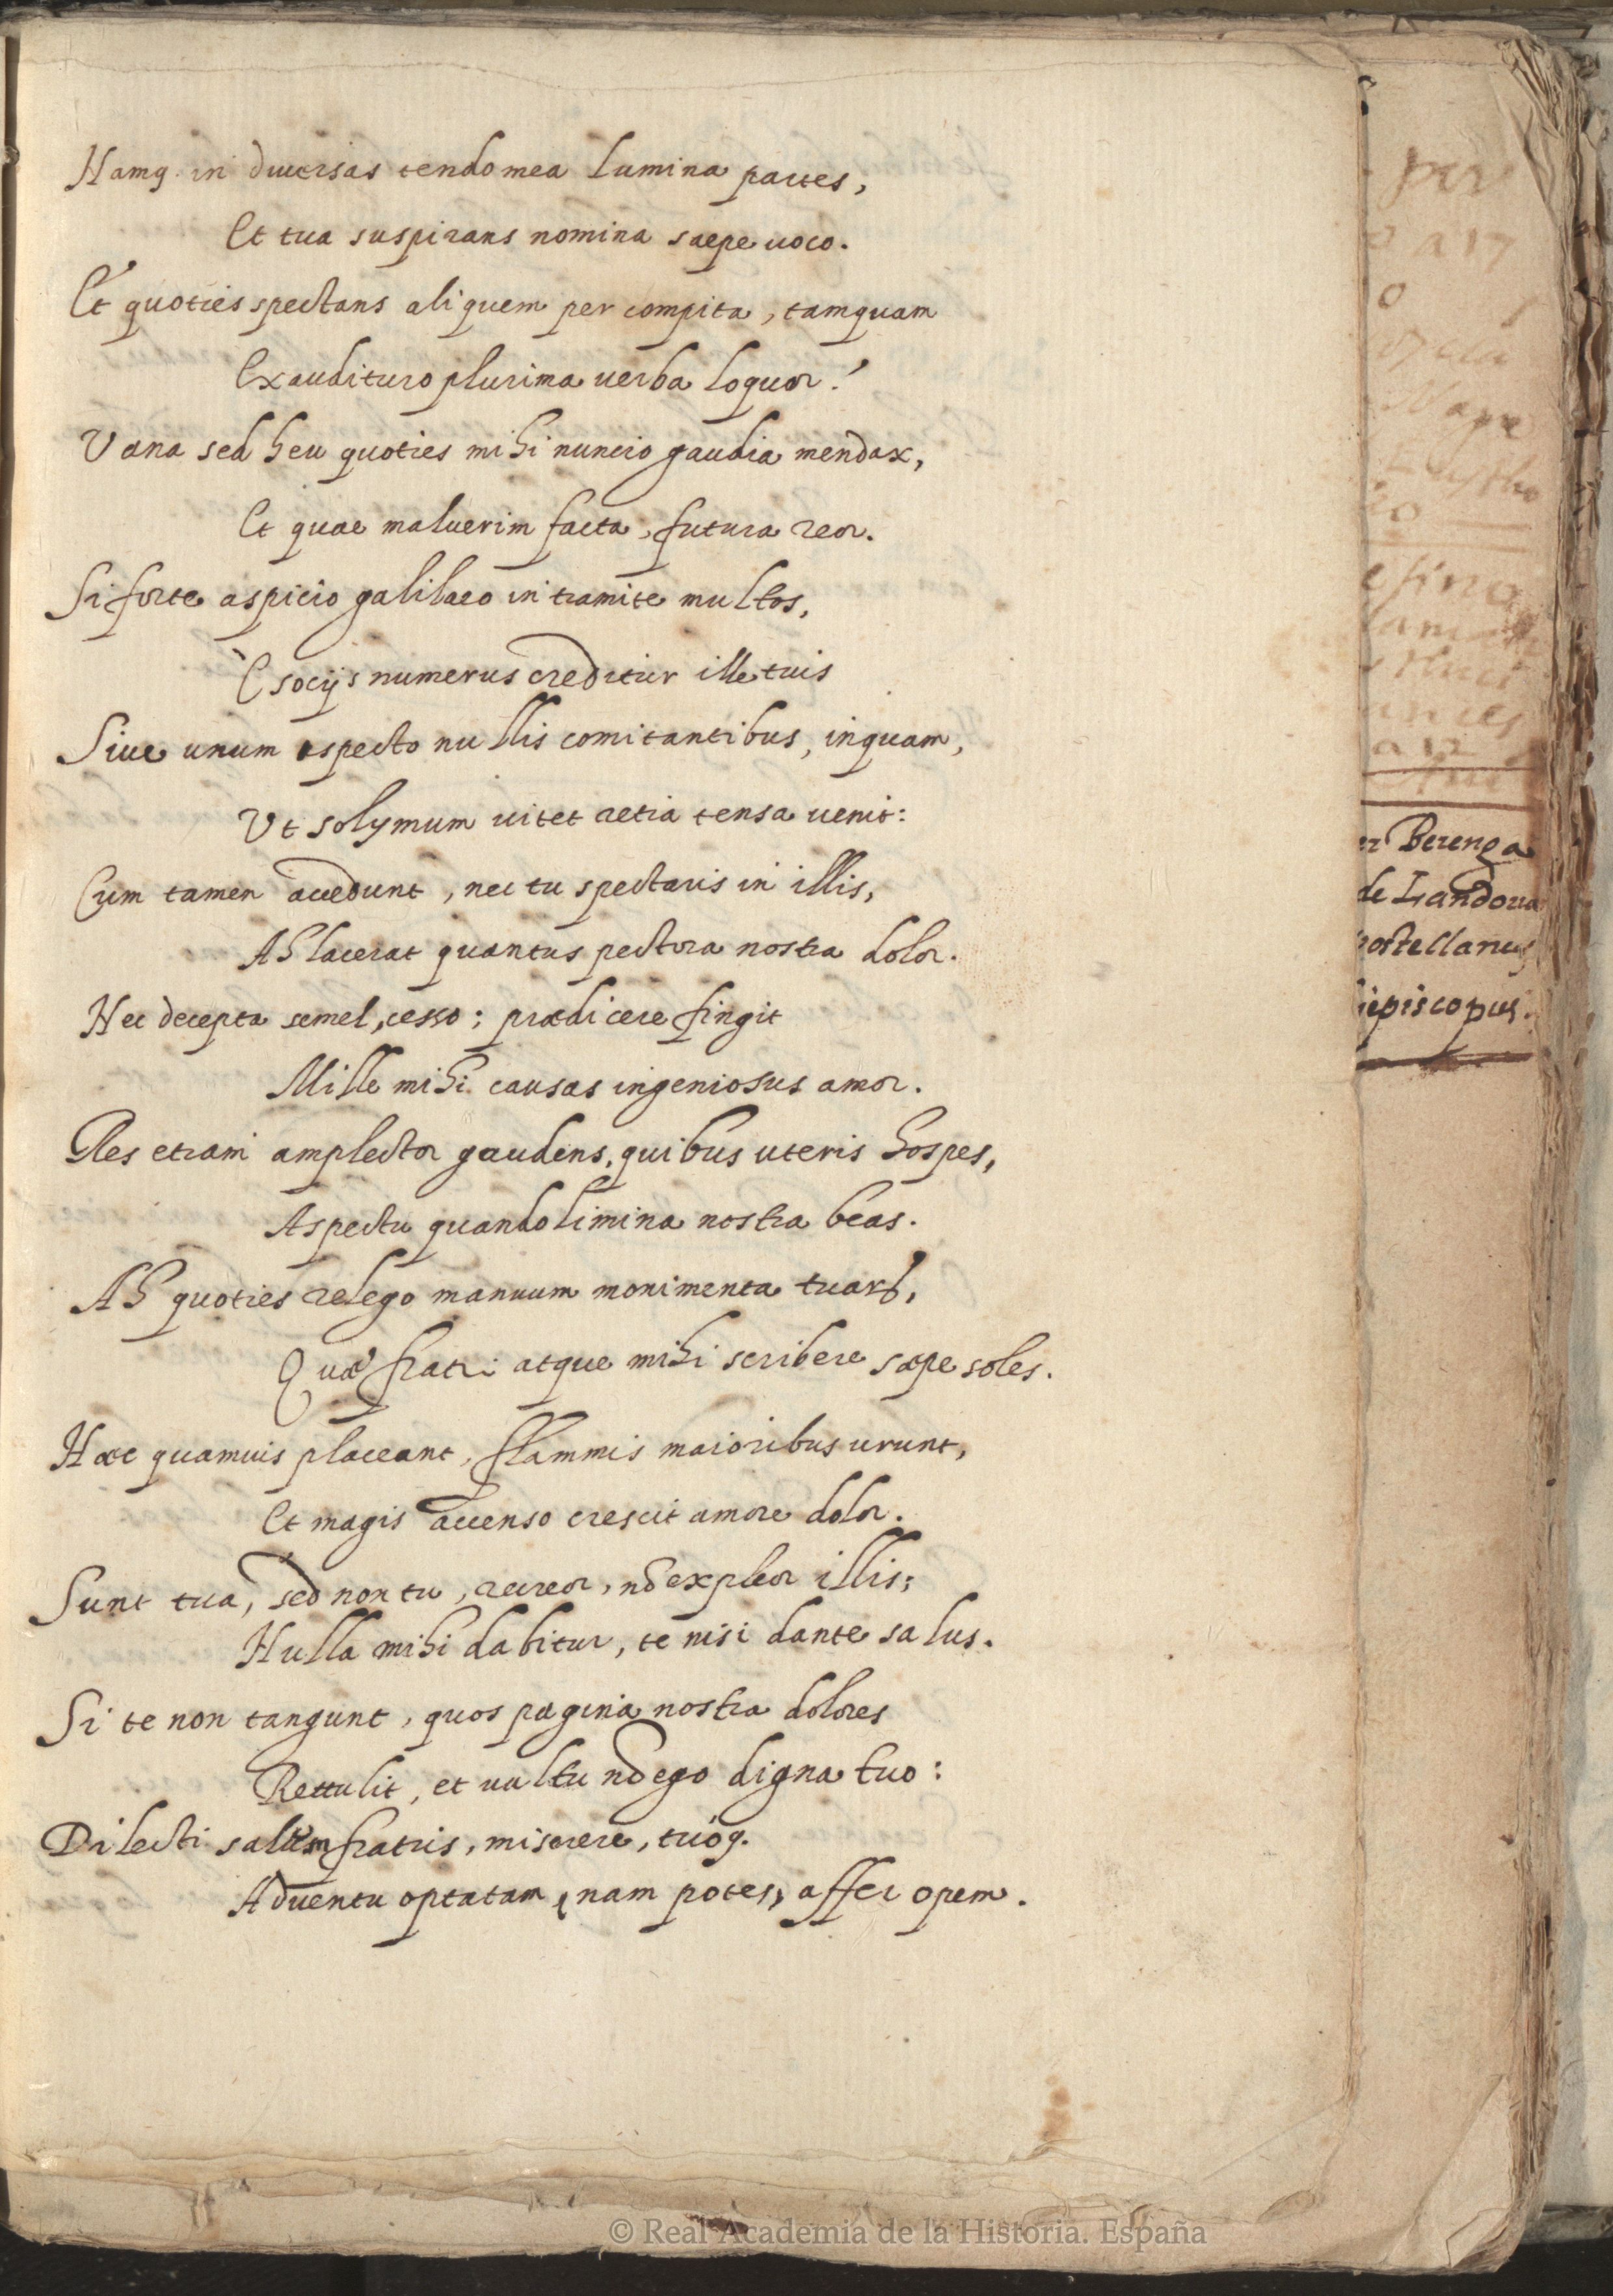 Namq. in diuersas tendo mea lumina partes,
Et tua suspirans nomina saepe uoco.
Et quoties spectans aliquem per compita, tamquam
Exaudituro plurima uerba loquor!
Vana sed heu quoties mihi nuncio gaudia mendax,
Et quae maluerim facta, futura reor.
Si forte aspicio galilaeo in tramite multos,
E socijs numerus creditur ille tuis
Siue unum aspecto nullis comitantibus, inquam,
Vt solymum uitet retia tensa uenit:
Cum tamen accedunt, nec tu spectaris in illis,
Ah lacerat quantus pectora nostra dolor.
Nec decepta semel, cesso; prædicere fingit
Mille mihi causas ingeniosus amor.
Res etiam amplector gaudens, quibus uteris hospes,
Aspectu quando limina nostra beas.
Ah quoties relego manuum monimenta tuarũ,
Quæ fratri atque mihi scribere sæpe soles.
Hæc quamuis placeant, flammis maioribus urunt,
Et magis accenso crescit amore dolor.
Sunt tua, sed non tu, recreor, nõ expleor illis;
Nulla mihi dabitur, te nisi dante salus.
Si te non tangunt, quos pagina nostra dolores
Rettulit, et uultu nõ ego digna tuo:
Dilecti saltem fratris, miserere, tuóq.
Aduentu optatam (nam potes) affer opem.
per
o a 17
o
er Berenga
de Landora
postellanus
iepiscopus.
© Real Academia de la Historia. España